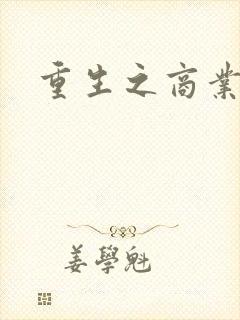 重生之商業
姜學魁